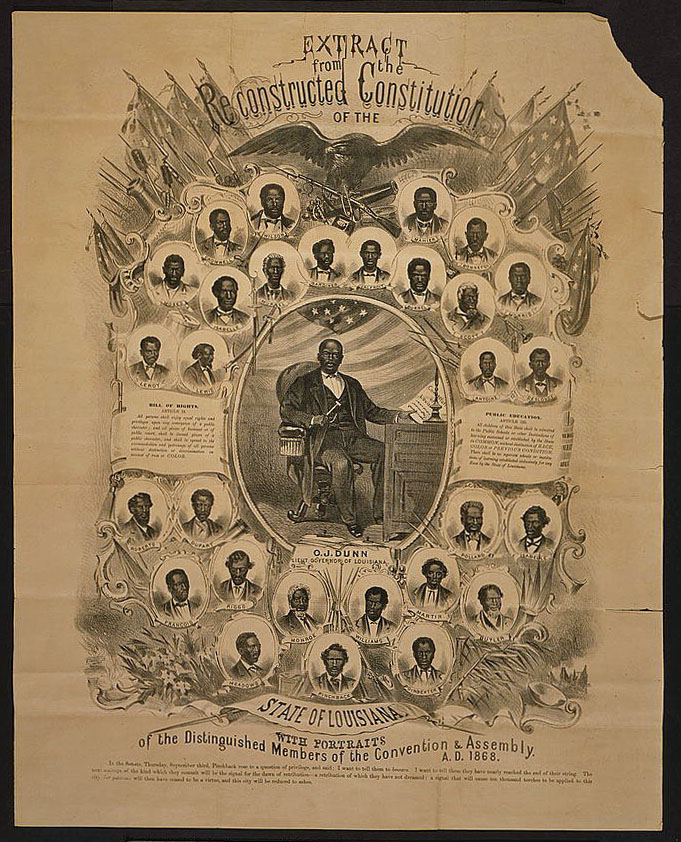 EXTRACT
from the
Reconstructed Constitution
OF THE
WILSON
ISABELLE
MORRIS
LEROY
LEWIS
ANTOINE
BILL OF RIGHTS.
ARTICLE 13.
All persons shall enjoy equal rights and
privileges upon any conveyance of a public
character; and all places of business or of
public resort, shall be deemed places of a
public character, and shall be opened to the
accommodation and patronage of all persons
without distinction or discrimination on
account of race or COLOR.
PUBLIC EDUCATION.
ARTICLE 135.
All children of this State shall be admitted
to the Public Schools or other Institutions of
learning sustained or established by the State
in COMMON, without distinction of RACE,
COLOR or PREVIOUS CONDITION.
There shall be no separate schools or institu-
tions of learning established exclusively for any
Race by the State of Louisiana.
ROBERTS
POLLARD
O.J. DUNN
LIEUT GOVERNOR OF LOUISIANA.
FRANCOIS
RIGGS
MONROE
WILLIAMS
MARTIN
BUTLER
MEADOWS
PINCHBACK
POINDEXTER
STATE OF LOUISIANA.
WITH PORTRAITS
of the Distinguished Members of the Convention & Assembly.
A.D. 1868.
In the Senate, Thursday, September third, Pinchback rose to a question of privilege, and said: I want to tell them to beware. I want to tell them they have nearly reached the end of their string. The
next outrage of the kind which they commit will be the signal for the dawn of retribution—a retribution of which they have not dreamed; a signal that will cause ten thousand torches to be applied to this
city, for patience will then have ceased to be a virtue, and this city will be reduced to ashes.